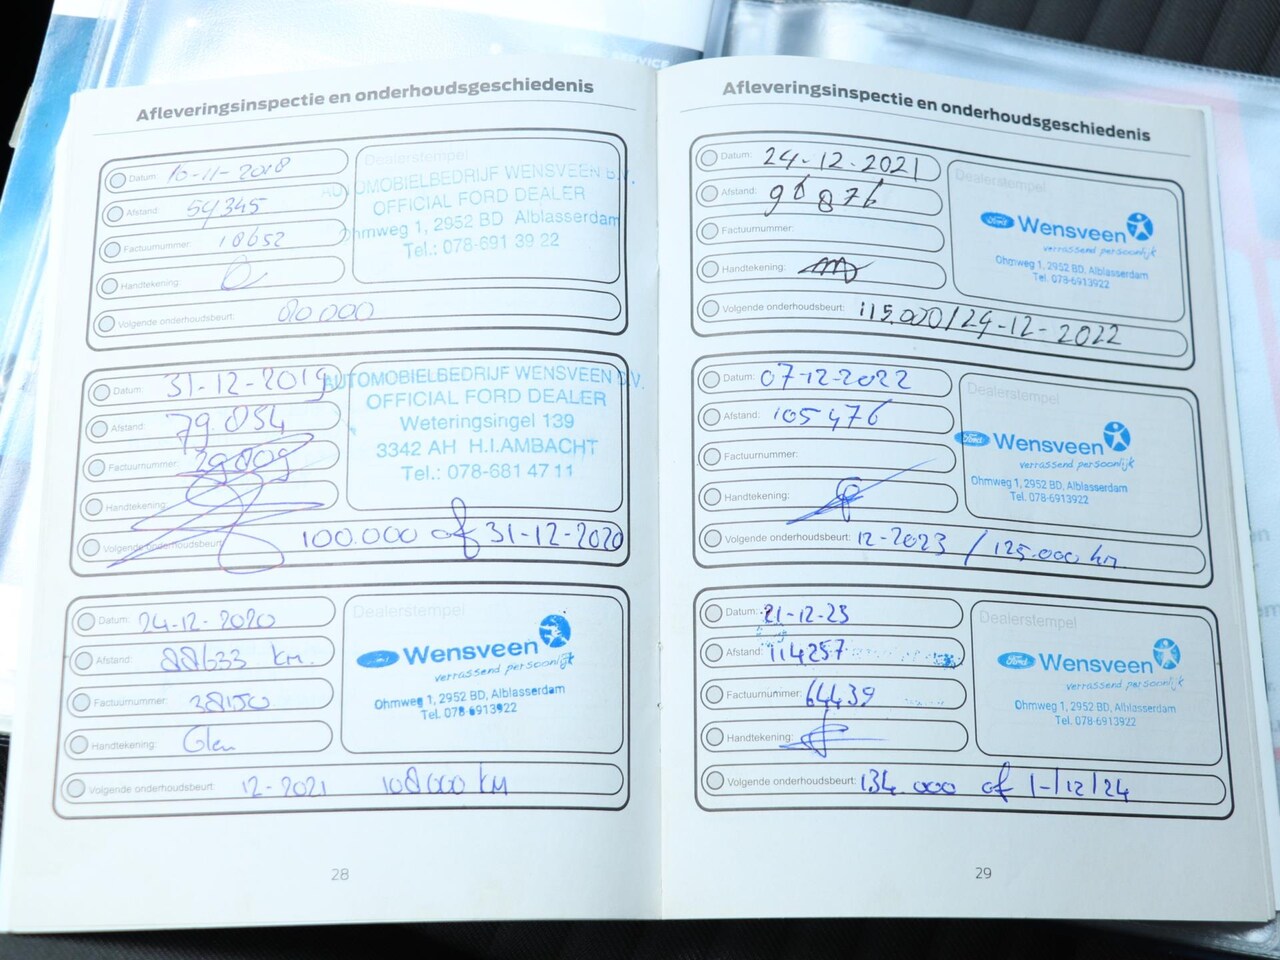 SERVICE
Afleveringsinspectie en onderhoudsgeschiedenis
Datum: 10-11-2018
Afstand: 54345
Factuurnummer: 18652
Handtekening:
Volgende onderhoudsbeurt: 80.000
Dealerstempel
AUTOMOBIELBEDRIJF WENSVEEN B.V.
OFFICIAL FORD DEALER
Ohmweg 1, 2952 BD Alblasserdam
Tel.: 078-691 39 22
Datum: 31-12-2019
Afstand: 79.854
Factuurnummer:
Handtekening:
Volgende onderhoudsbeurt: 100.000 of 31-12-2020
AUTOMOBIELBEDRIJF WENSVEEN B.V.
OFFICIAL FORD DEALER
Weteringsingel 139
3342 AH H.I.AMBACHT
Tel.: 078-681 47 11
Datum: 24-12-2020
Afstand: 88633 km.
Factuurnummer: 38150
Handtekening: Glen
Volgende onderhoudsbeurt: 12-2021 108000 KM
Dealerstempel
Ford Wensveen
verrassend persoonlijk
Ohmweg 1, 2952 BD, Alblasserdam
Tel. 078-6913922
28
Afleveringsinspectie en onderhoudsgeschiedenis
Datum: 24-12-2021
Afstand: 96876
Factuurnummer:
Handtekening:
Volgende onderhoudsbeurt: 115.000/24-12-2022
Dealerstempel
Ford Wensveen
verrassend persoonlijk
Ohmweg 1, 2952 BD, Alblasserdam
Tel. 078-6913922
Datum: 07-12-2022
Afstand: 105476
Factuurnummer:
Handtekening:
Volgende onderhoudsbeurt: 12-2023 / 125.000 km
Dealerstempel
Ford Wensveen
verrassend persoonlijk
Ohmweg 1, 2952 BD, Alblasserdam
Tel. 078-6913922
Datum: 21-12-23
Afstand: 114257
Factuurnummer: 64439
Handtekening:
Volgende onderhoudsbeurt: 134.000 of 1-/12/24
Dealerstempel
Ford Wensveen
verrassend persoonlijk
Ohmweg 1, 2952 BD, Alblasserdam
Tel. 078-6913922
29